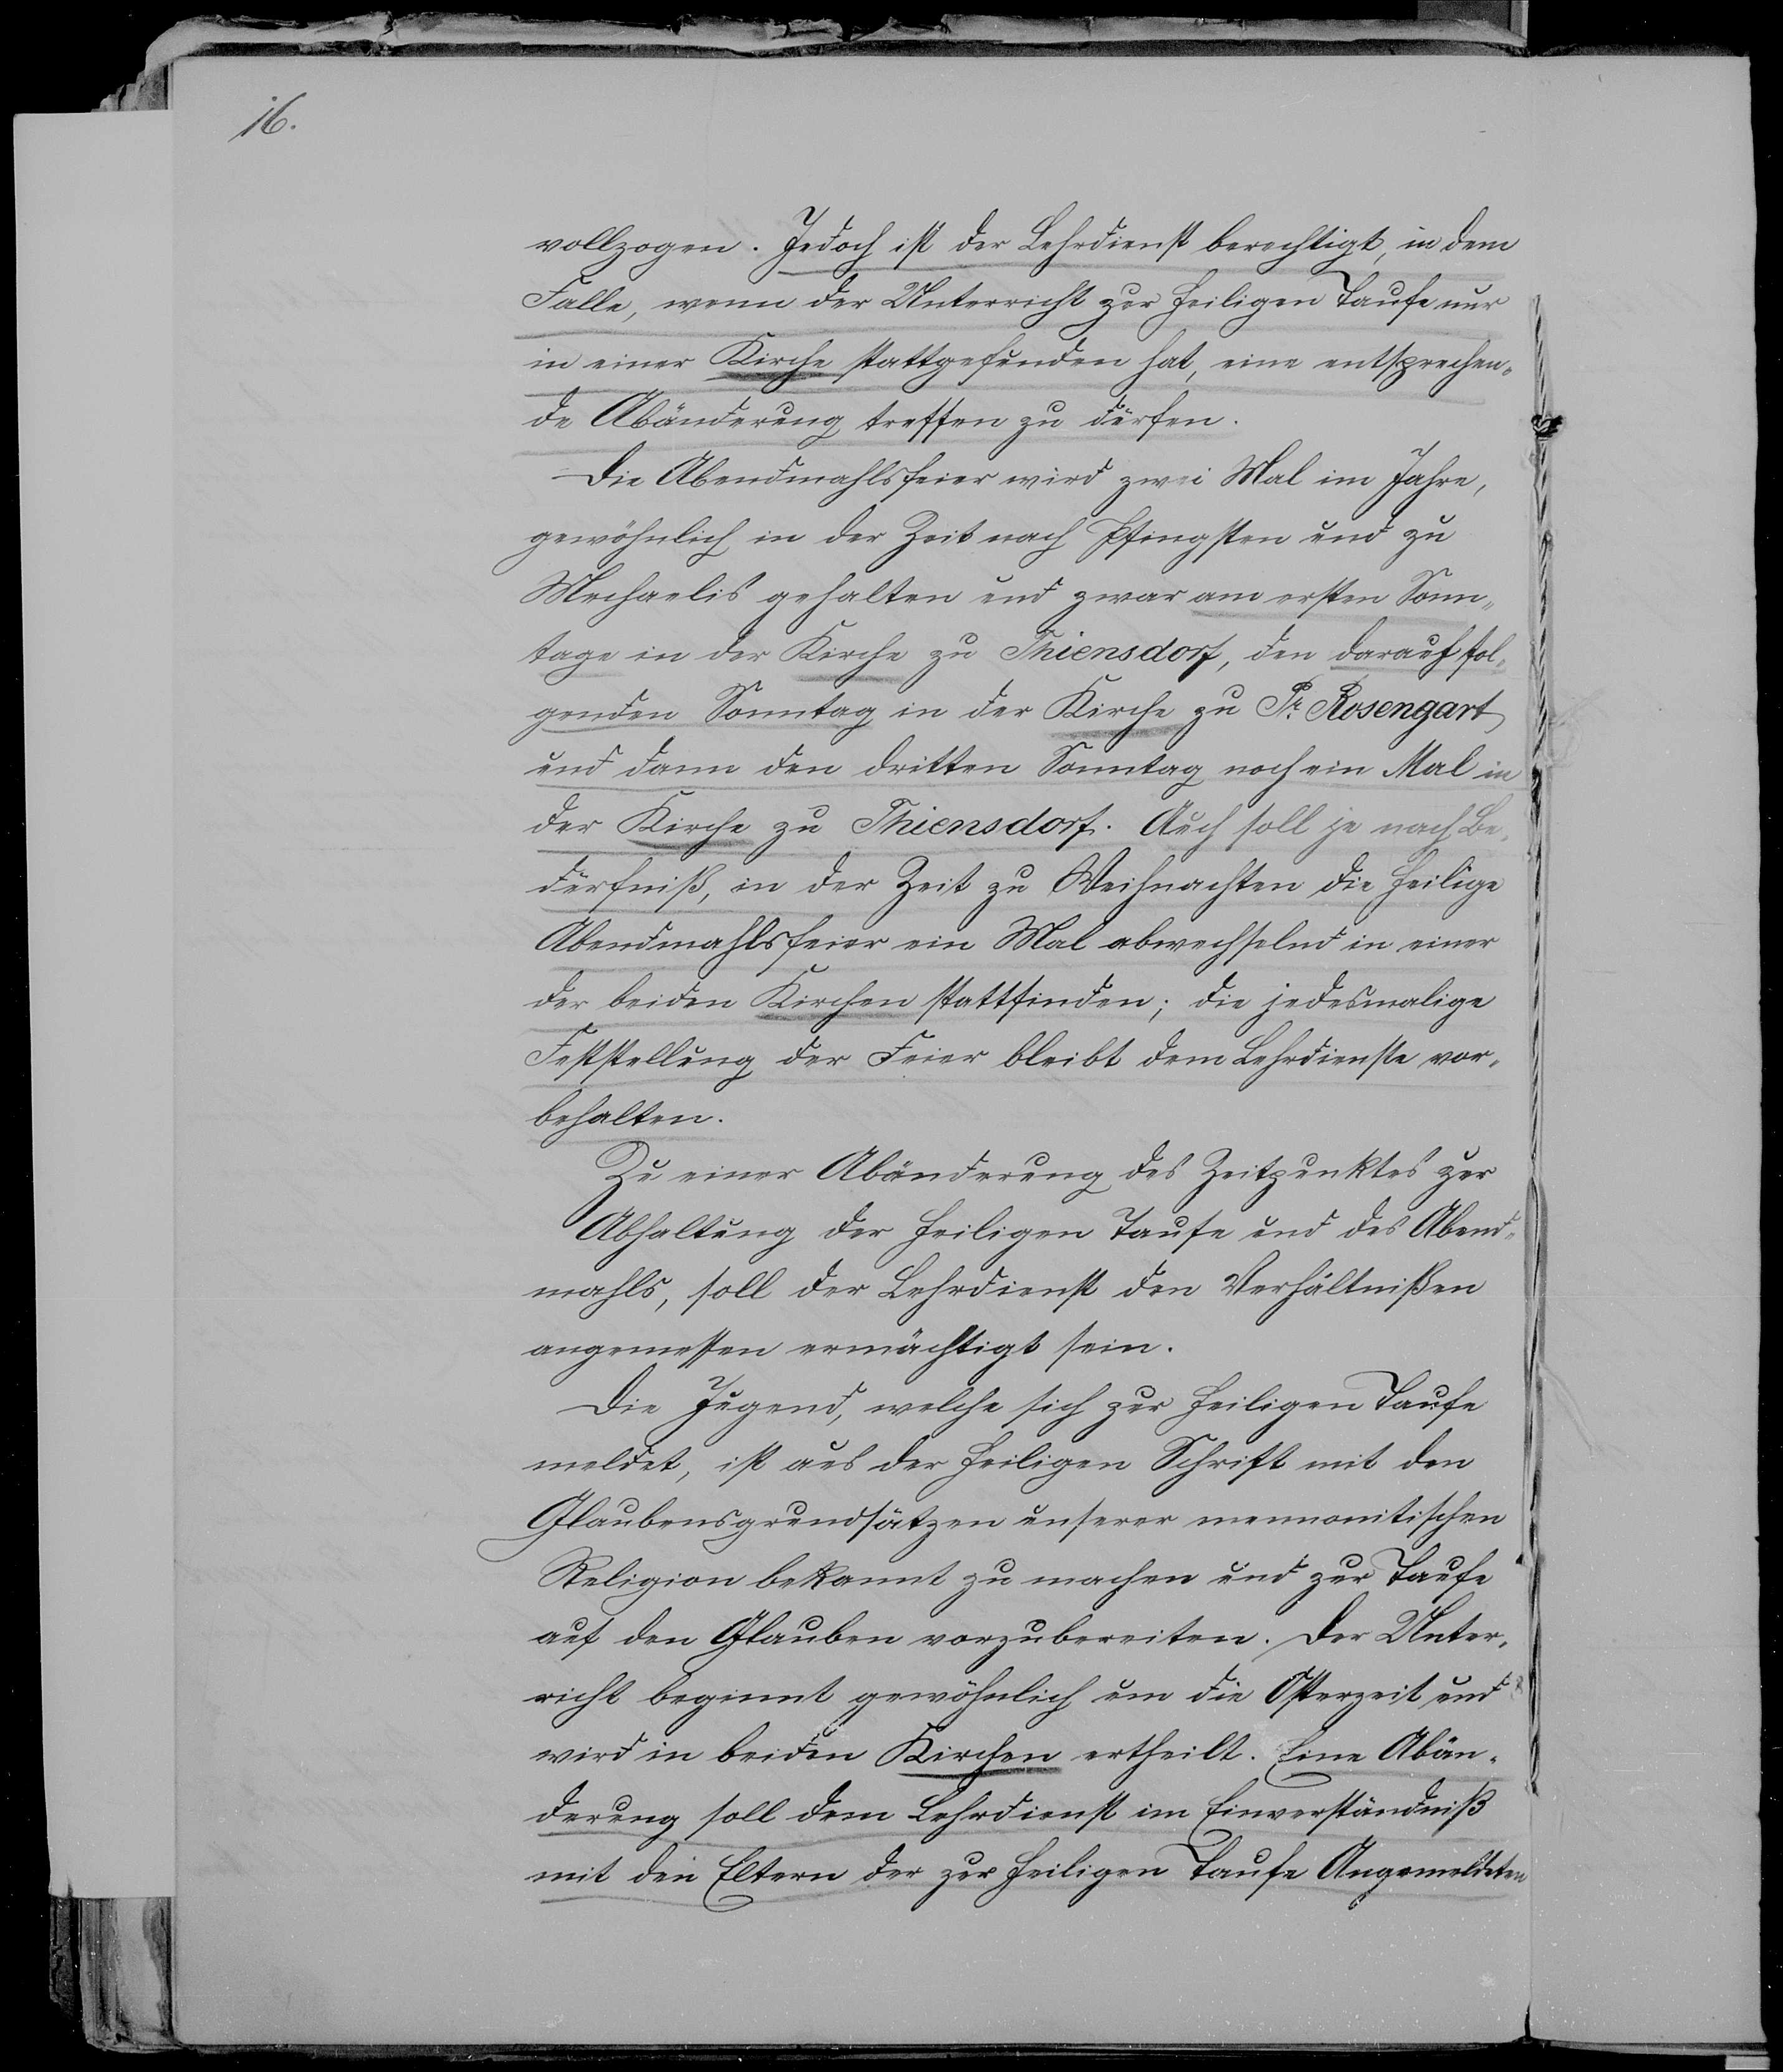 16.
vollzogen. Jedoch ist der Lehrdienst berechtigt, in dem
Falle, wenn der Unterricht zur heiligen Taufe nur
in einer Kirche stattgefunden hat, eine entsprechen-
de Abänderung treffen zu dürfen.
Die Abendmahlsfeier wird zwei Mal im Jahre,
gewöhnlich in der Zeit nach Pfingsten und zu
Mechaelis gehalten und zwar am ersten Sonn-
tage in der Kirche zu Thiensdorf, den darauf fol-
genden Sonntag in der Kirche zu Pr. Rosengart
und dann den dritten Sonntag noch ein Mal in
der Kirche zu Thiensdorf. Auch soll je nach Be-
dürfniß, in der Zeit zu Weihnachten die heilige
Abendmahlsfeier ein Mal abwechselnd in einer
der beiden Kirchen stattfinden; die jedesmalige
Feststellung der Feier bleibt dem Lehrdienste vor-
behalten.
Zu einer Abänderung des Zeitpunktes zur
Abhaltung der heiligen Taufe und des Abend-
mahls, soll der Lehrdienst den Verhältnißen
angemessen ermächtigt sein.
Die Jugend, welche sich zur heiligen Taufe
meldet, ist aus der heiligen Schrift mit den
Glaubensgrundsätzen unserer mennonitischen
Religion bekannt zu machen und zur Taufe
auf den Glauben vorzubereiten. Der Unter-
richt beginnt gewöhnlich um die Osterzeit und
wird in beiden Kirchen ertheilt. Eine Abän-
derung soll dem Lehrdienst im Einverständniß
mit den Eltern der zur heiligen Taufe Angemeldeten